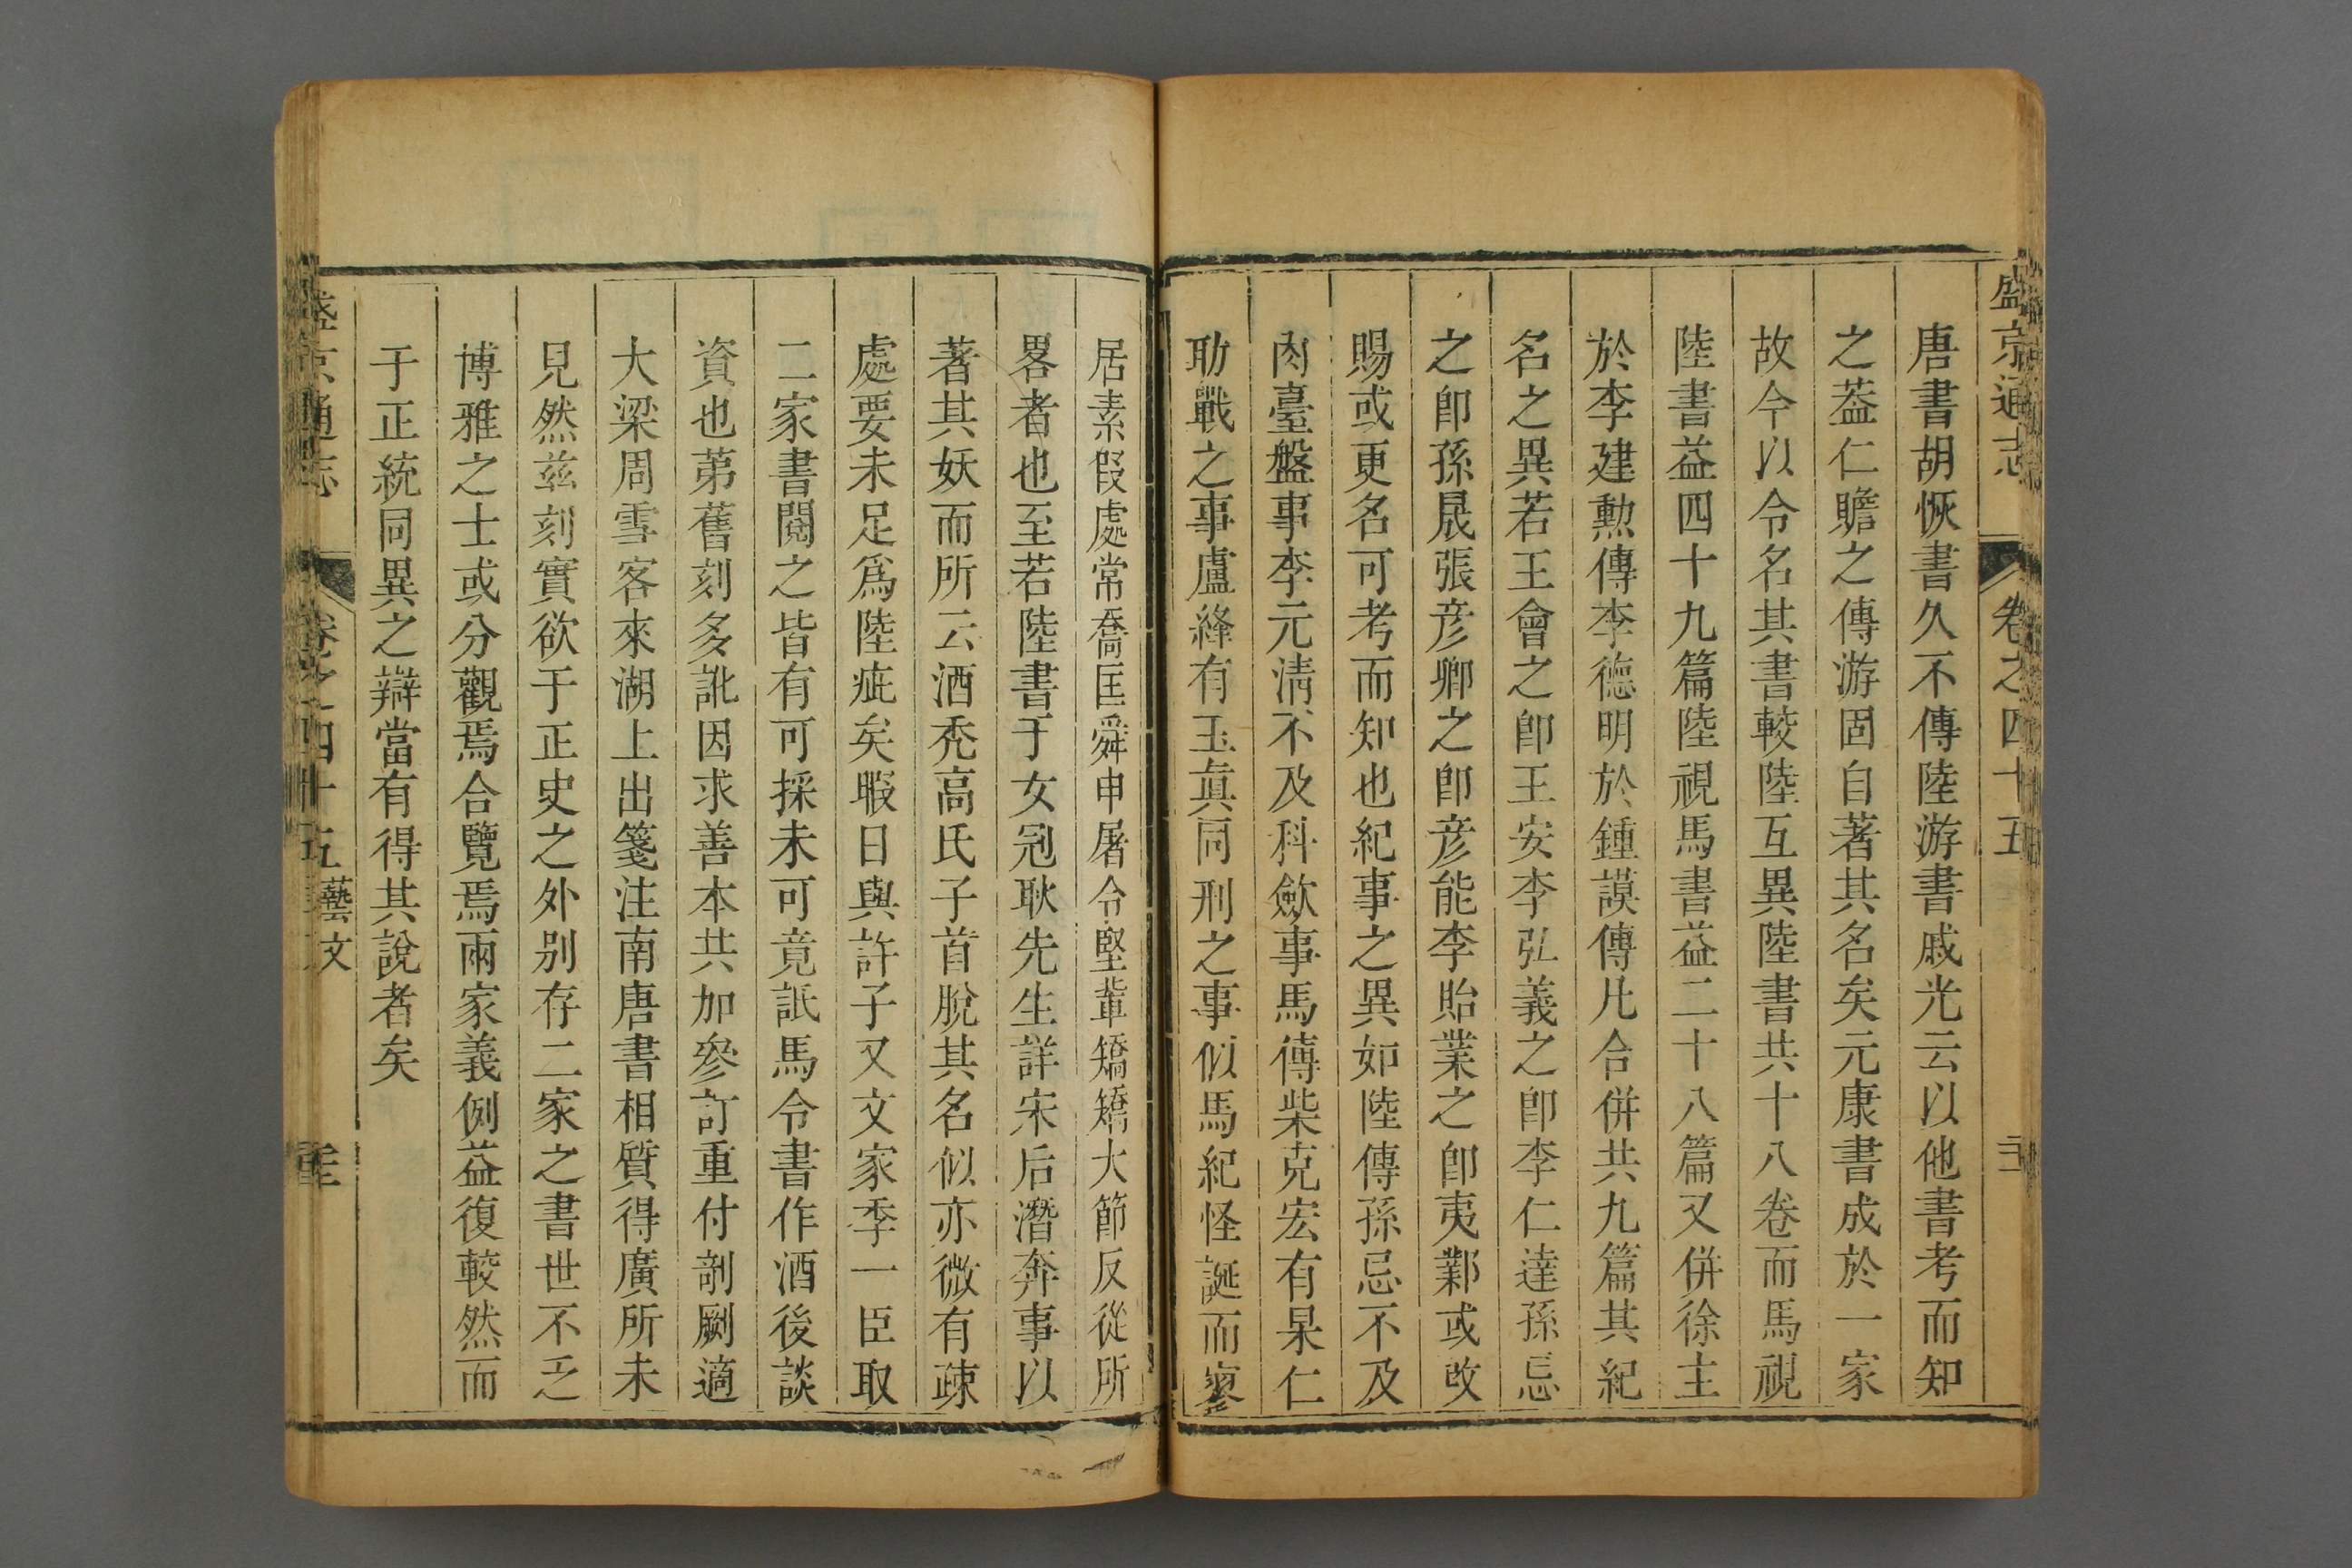 盛京通志 卷之四十五
唐書胡恢書久不傳陸游書戚光云以他書考而知
之葢仁贍之傳游固自著其名矣元康書成於一家
故今以令名其書較陸互異陸書共十八卷而馬視
陸書益四十九篇陸視馬書益二十八篇又併徐主
於李建勲傳李德明於鍾謨傳凡合併共九篇其紀
名之異若王會之卽王安李弘義之卽李仁達孫忌
之卽孫晟張彦卿之卽彦能李貽業之卽夷鄴或改
賜或更名可考而知也紀事之異如陸傳孫忌不及
肉臺盤事李元淸不及科歛事馬傳柴克宏有杲仁
助戰之事盧絳有玉眞同刑之事似馬紀怪誕而寥
居素假處常喬匡舜申屠令堅輩矯矯大節反從所
畧者也至若陸書于女冠耿先生詳宋后潛奔事以
著其妖而所云酒禿高氏子首脫其名似亦微有疎
處要未足爲陸疵矣暇日與許子又文家季一臣取
二家書閱之皆有可採未可竟詆馬令書作酒後談
資也苐舊刻多訛因求善本共加參訂重付剞劂適
大梁周雪客來湖上出箋注南唐書相質得廣所未
見然茲刻實欲于正史之外别存二家之書世不乏
博雅之士或分觀焉合覽焉兩家義例益復較然而
于正統同異之辯當有得其說者矣
盛京通志 卷之四十五 藝文